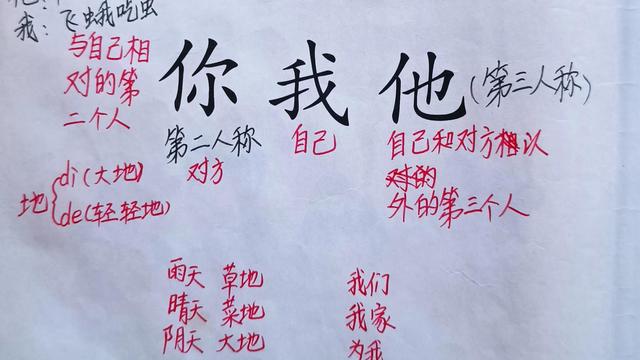 我：飞蛾我吃虫
与自己相
对的第
二个人
你 我 他(第三人称)
第二人称 自己 自己和对方以
对方 外的第三个人
地{di(大地)
de(轻轻地)
雨天 草地 我们
晴天 菜地 我家
阴天 大地 为我